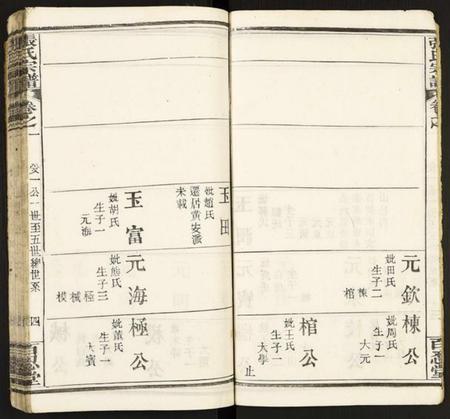 張氏宗譜
卷之
百忍堂
元欽
妣田氏
生子二
棟
棺
棟公
妣周氏
生子一
大元
棺公
妣王氏
生子一
大學
止
玉田
妣趙氏
遷居黃安派
未載
玉富
妣胡氏
生子一
元海
元海
妣熊氏
生子三
極
械
模
極公
妣董氏
生子一
大賓
張氏宗譜
卷之一
受一公一世至五世總世系
四
百忍堂